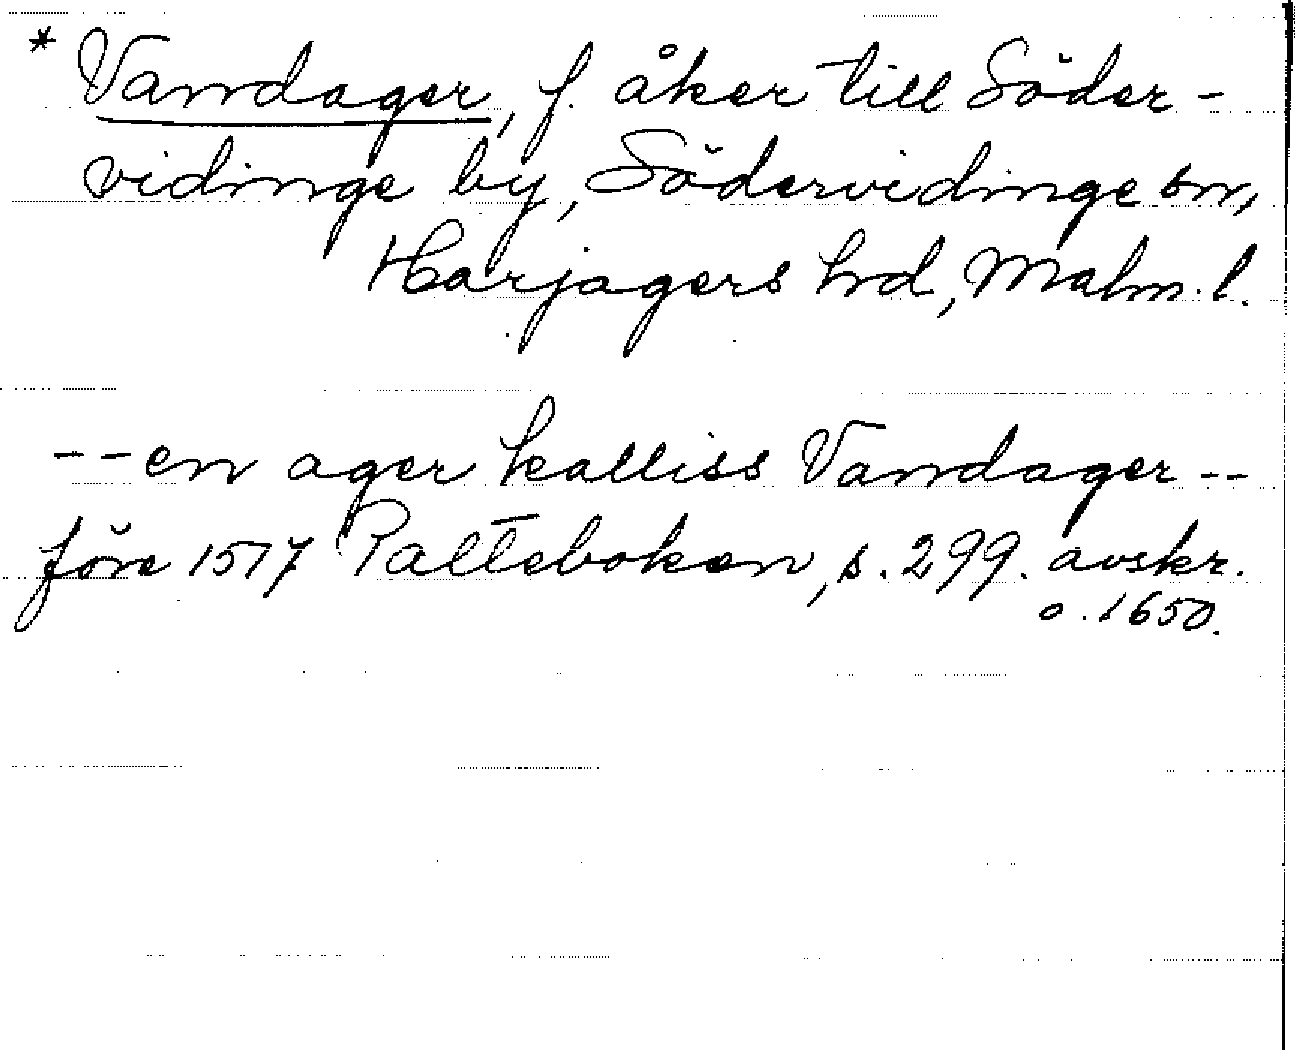 * Vandager, f. åker till Söder-
vidinge by, Södervidinge sn,
Harjagers hrd, Malm. l.
-- en ager kalliss Vandager --
före 1517 Palteboken, s. 299. avskr.
o. 1650.